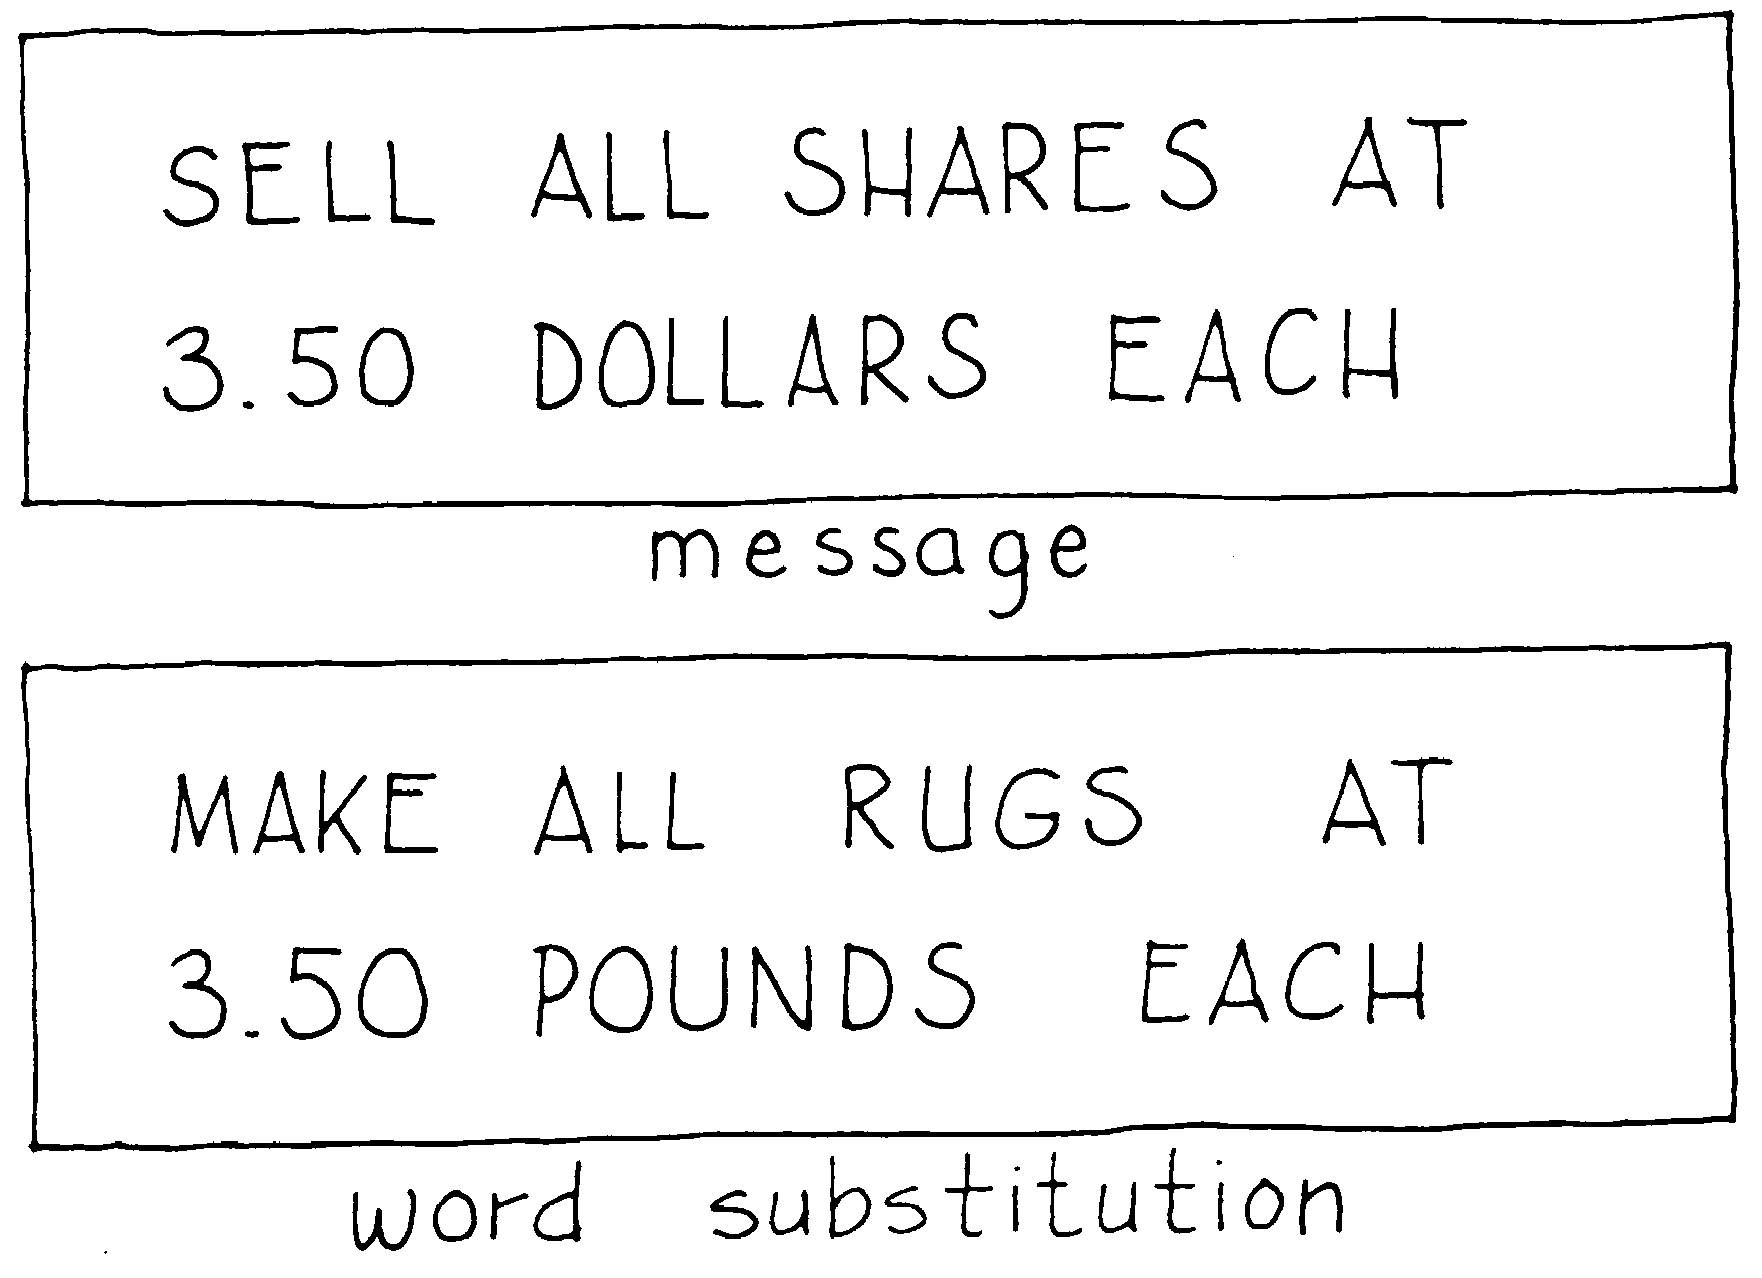 SELL ALL SHARES AT
3.50 DOLLARS EACH
message
MAKE ALL RUGS AT
3.50 POUNDS EACH
word substitution